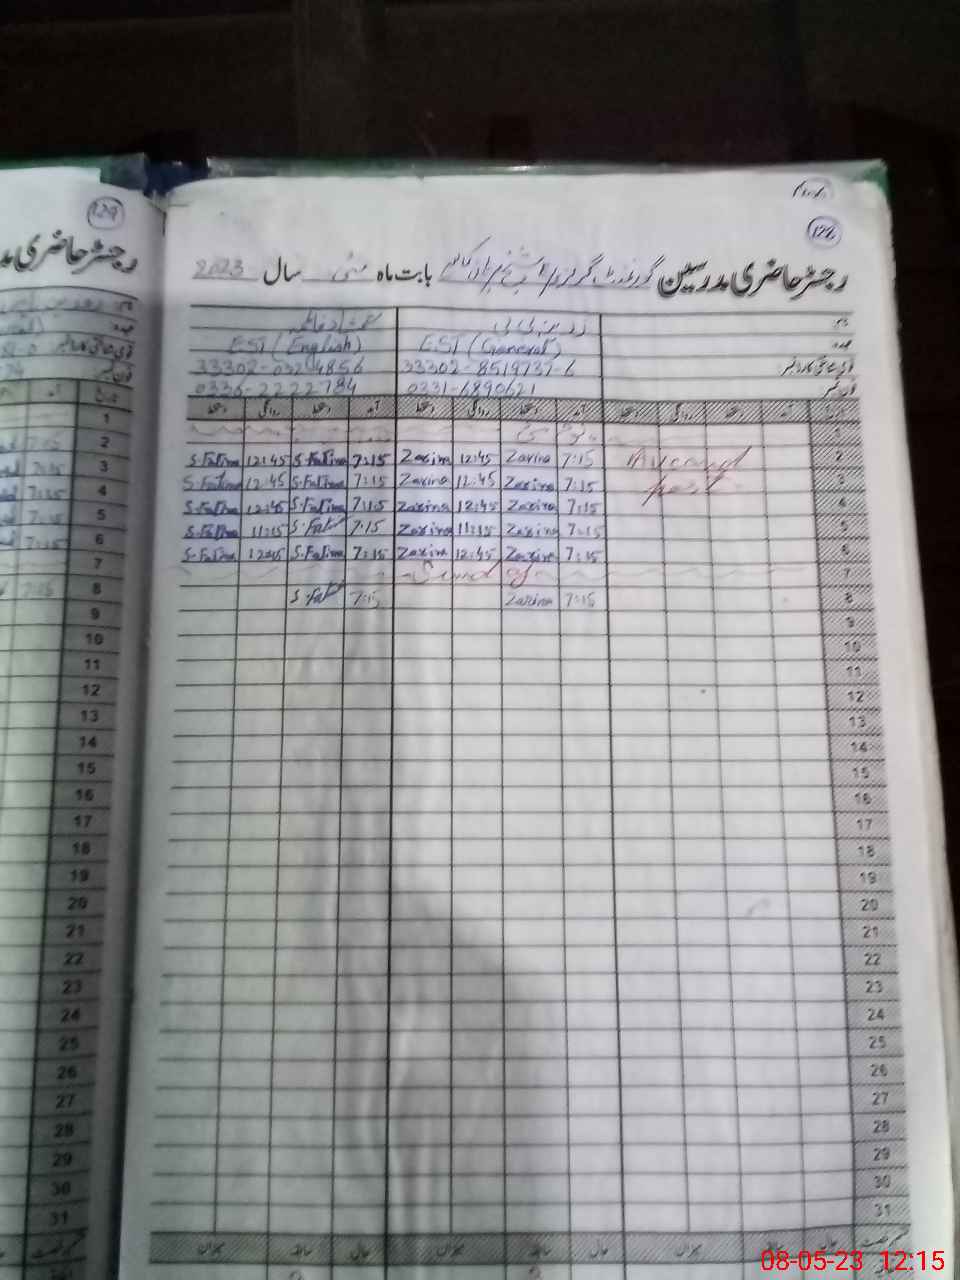 129
122
رجسٹر حاضری مدرسین گورنمنٹ گرلز بابت ماہ مئی سال 2023
نام
زرینہ بی بی
عہدہ
EST (General) EST (English)
قومی شناختی کارڈ نمبر
33302-8519737-6
فون نمبر
0331-6890621 0336-2222784
تاریخ آمد دستخط روانگی دستخط آمد دستخط روانگی دستخط آمد دستخط روانگی دستخط
1
S.Fatima 12:45 S.Fatima 7:15 Zarina 12:45 Zarina 7:15 2
S.Fatima 12:45 S.Fatima 7:15 Zarina 12:45 Zarina 7:15 post 3
S.Fatima 12:45 S.Fatima 7:15 Zarina 12:45 Zarina 7:15 4
S.Fatima 11:15 S.Fatima 7:15 Zarina 11:15 Zarina 7:15 5
S.Fatima 12:45 S.Fatima 7:15 Zarina 12:45 Zarina 7:15 6
Sunday 7
S.Fatima 7:15 Zarina 7:15 8
9
10
11
12
13
14
15
16
17
18
19
20
21
22
23
24
25
26
27
28
29
30
31
میزان سابقہ حال میزان سابقہ حال میزان سابقہ حال
رجسٹر حاضری
1
2
3
4
5
6
7
8
9
10
11
12
13
14
15
16
17
18
19
20
21
22
23
24
25
26
27
28
29
30
31
08-05-23 12:15